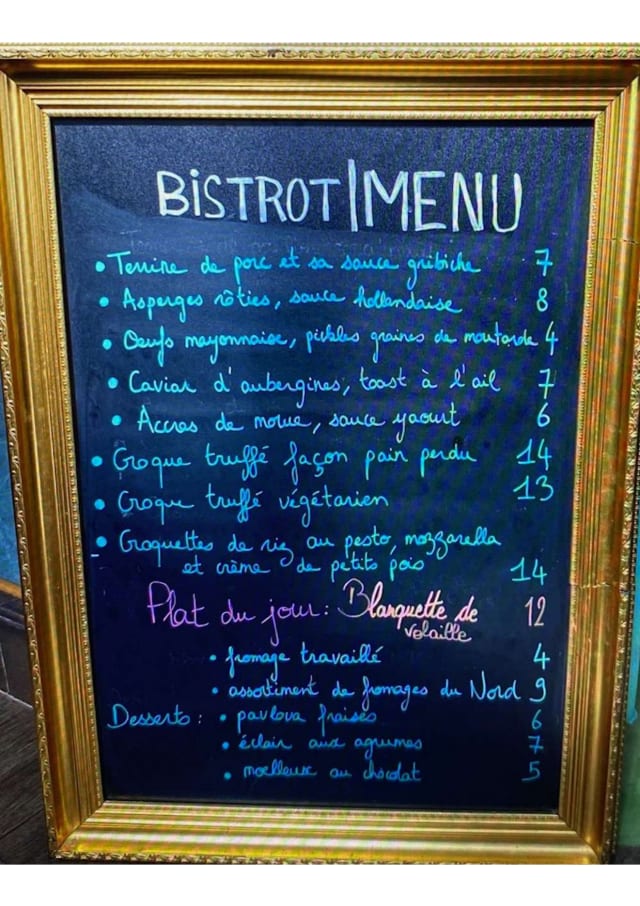 BISTROT|MENU
• Terrine de porc et sa sauce gribiche 7
• Asperges rôties, sauce hollandaise 8
• Oeufs mayonnaise, pickles graines de moutarde 4
• Caviar d'aubergines, toast à l'ail 7
• Accras de morue, sauce yaourt 6
• Croque truffé façon pain perdu 14
• Croque truffé végétarien 13
• Croquettes de riz au pesto, mozzarella
et crème de petits pois 14
Plat du jour: Blanquette de 12
volaille
• fromage travaillé 4
• assortiment de fromages du Nord 9
Desserts: • pavlova fraises 6
• éclair aux agrumes 7
• moelleux au chocolat 5